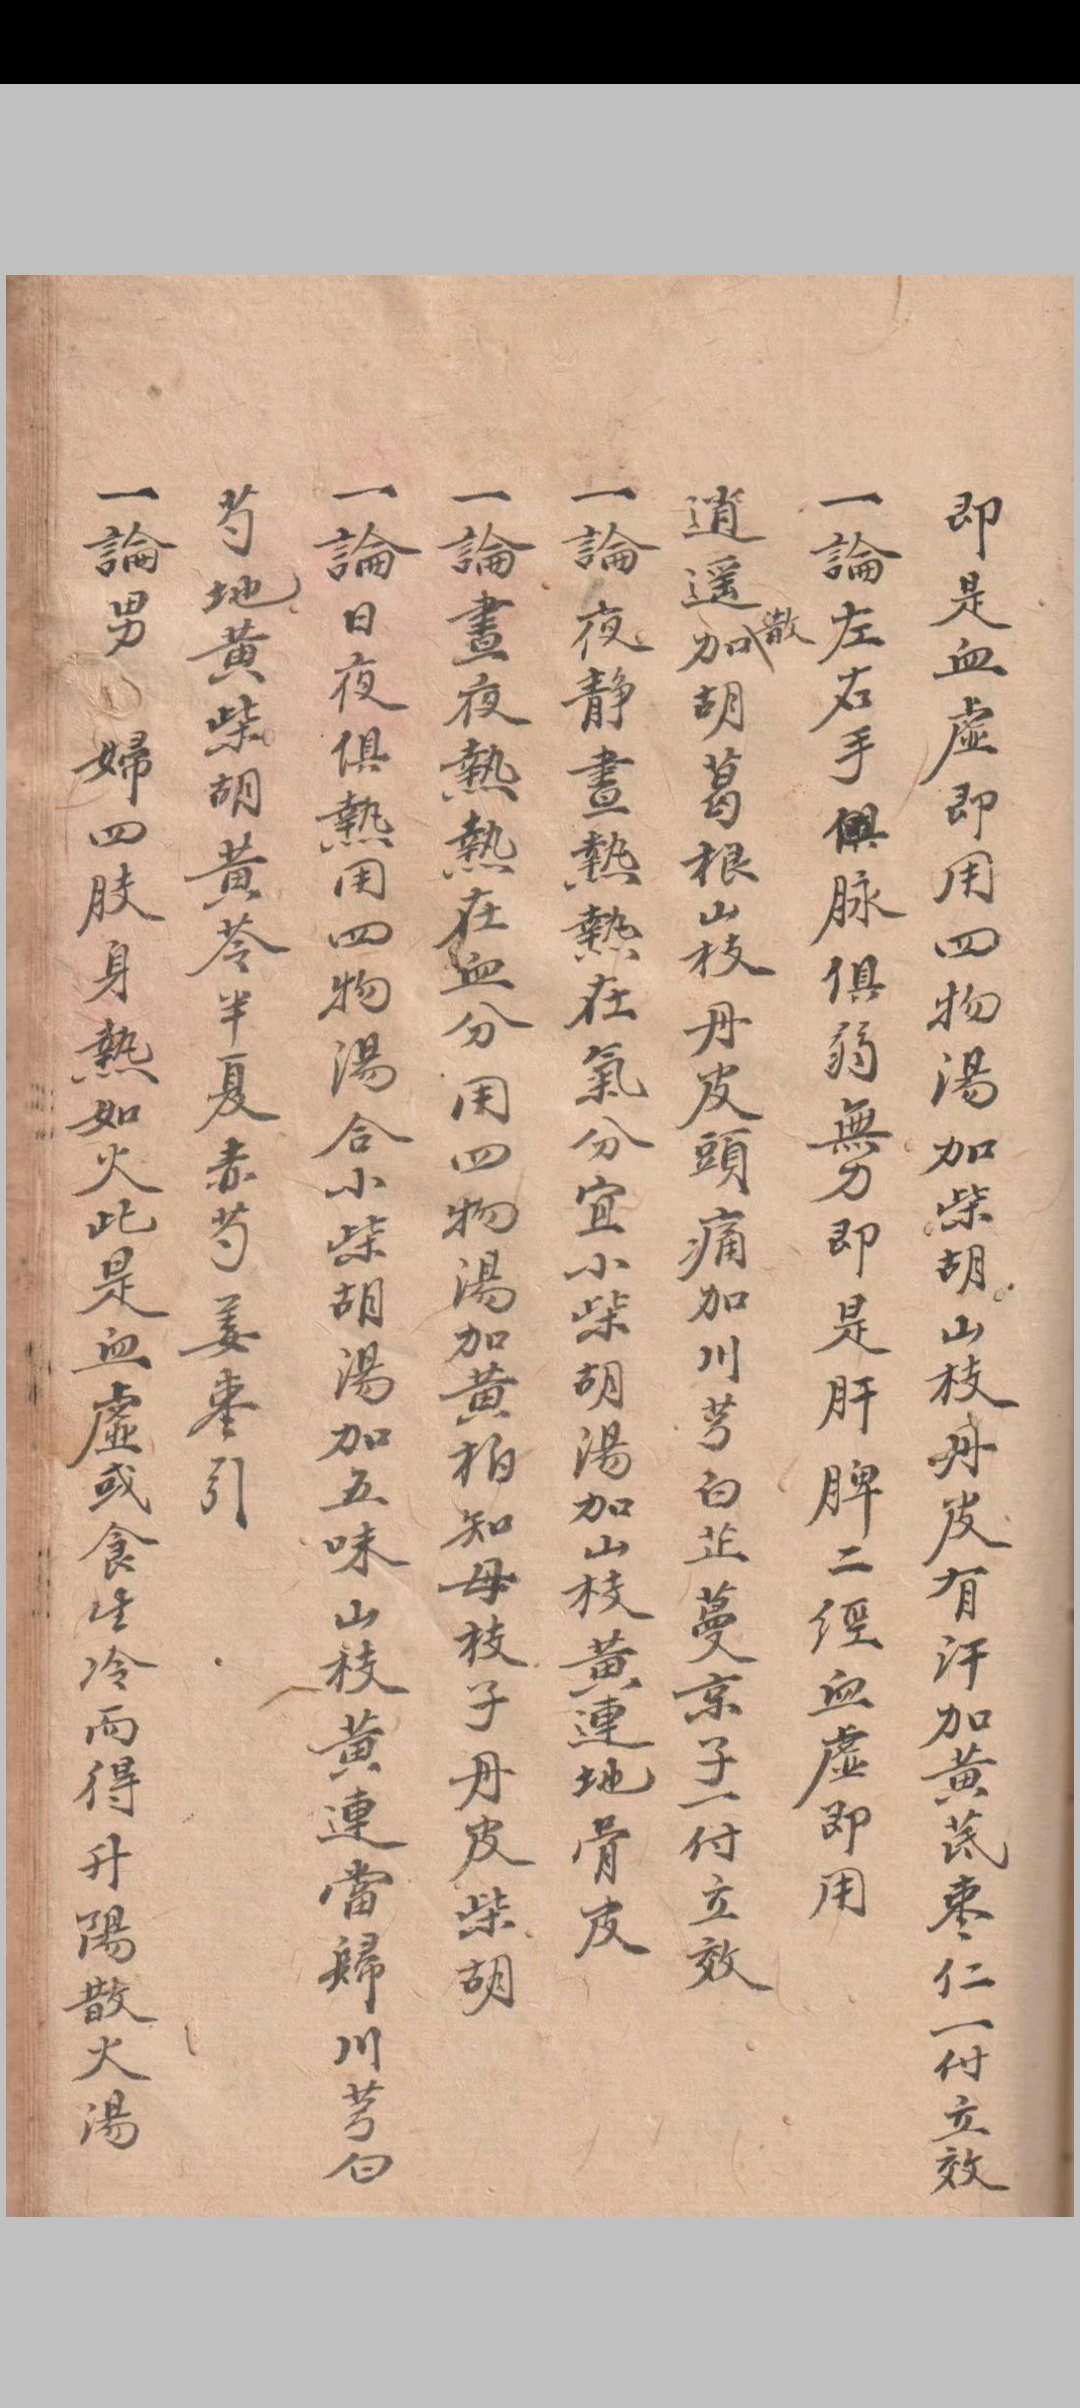 即是血虛即用四物湯加柴胡山枝丹皮有汗加黃芪棗仁一付立效
一論左右手俱脉俱弱無力即是肝脾二經血虛即用
逍遥散加胡葛根山枝丹皮頭痛加川芎白芷蔓京子一付立效
一論夜静晝熱熱在氣分宜小柴胡湯加山枝黃連地骨皮
一論晝夜熱熱在血分用四物湯加黃柏知母枝子丹皮柴胡
一論日夜俱熱用四物湯合小柴胡湯加五味山枝黃連當歸川芎白
芍地黃柴胡黃芩半夏赤芍姜棗引
一論男婦四肢身熱如火此是血虛或食生冷而得升陽散火湯